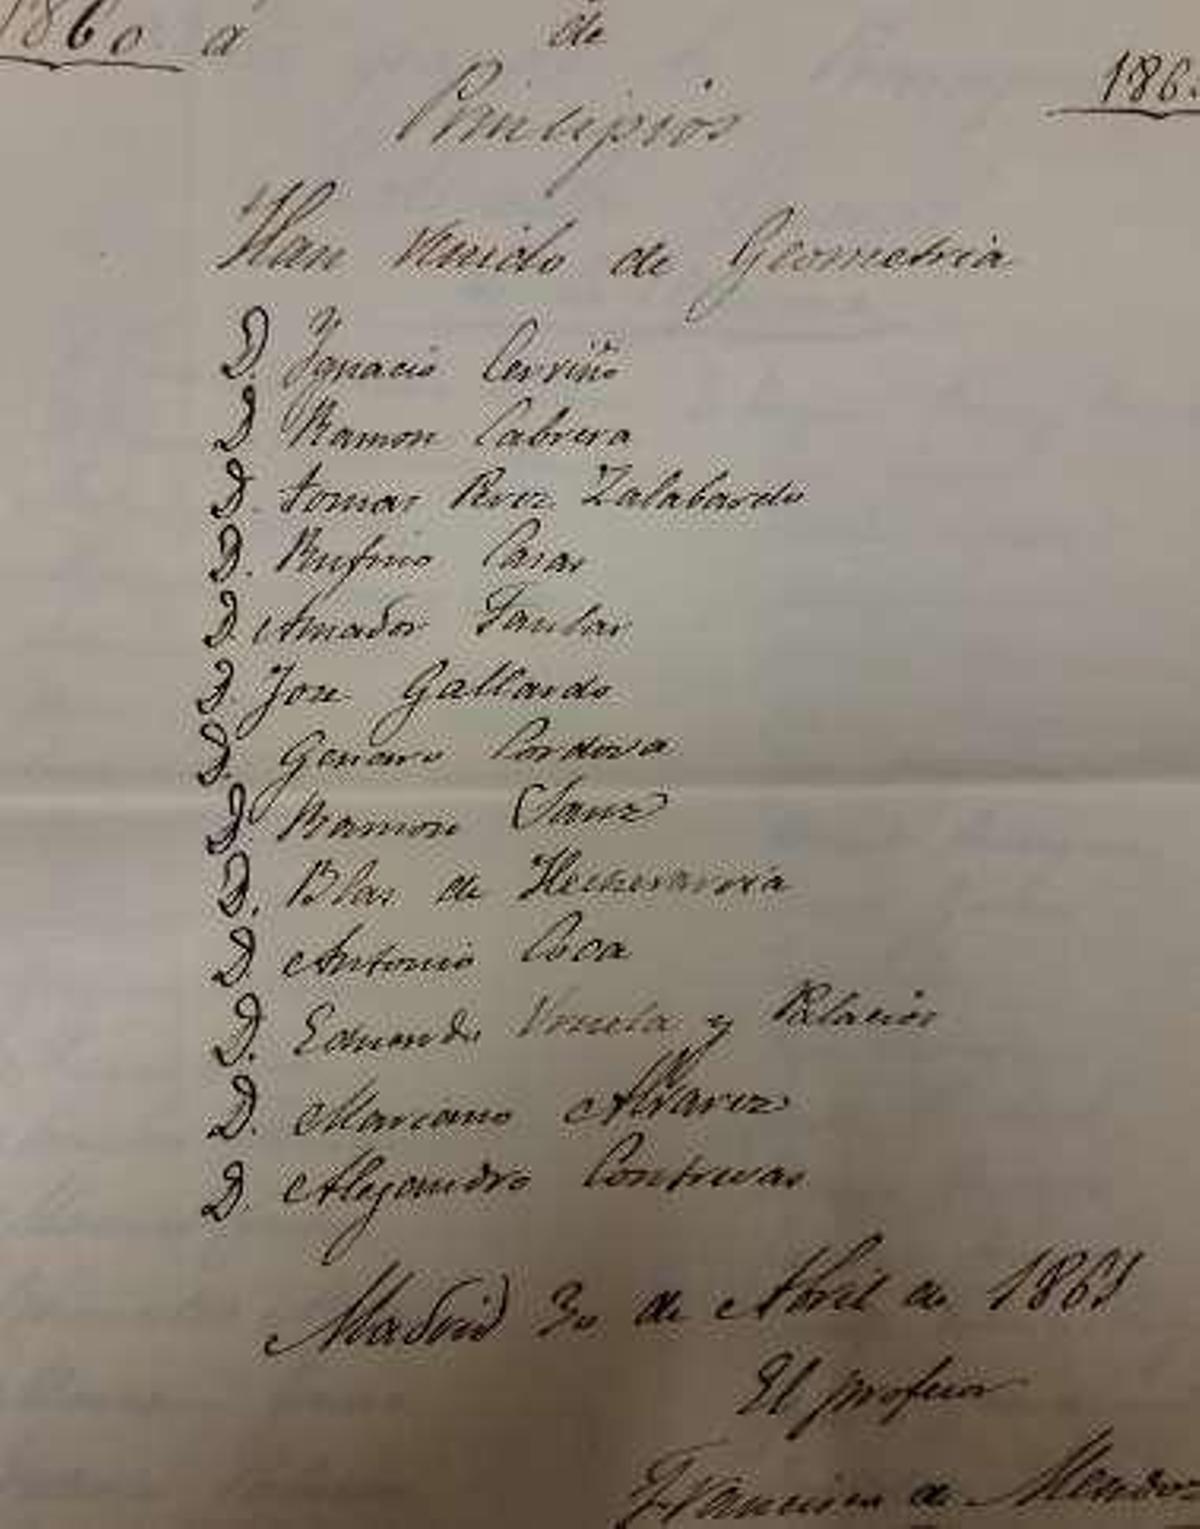 1860 a de 186
Principios
Han venido de Geometria
D. Ygnacio Cerviño
D. Ramon Cabrera
D. Tomas Perez Zalabardo
D. Rufino Casas
D. Amador
D. Jose Gallardo
D. Genaro Cordova
D. Ramon Sanz
D. Blas de Hechevarria
D. Antonio Coca
D. Eduardo y Palacios
D. Mariano Alvarez
D. Alejandro Contreras
Madrid 30 de Abril de 1861
El profesor
Francisco de Mendoz